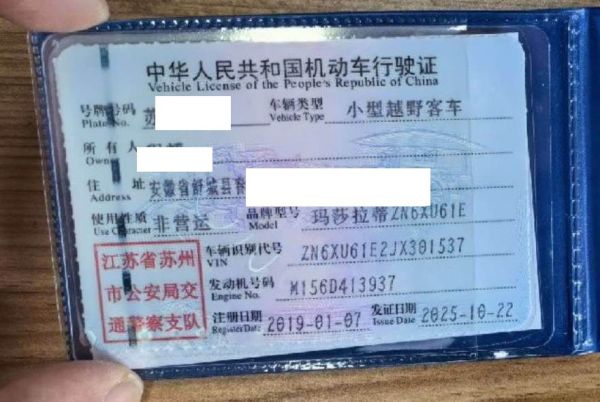 中华人民共和国机动车行驶证
Vehicle License of the People's Republic of China
号牌号码 苏 车辆类型 小型越野客车
Plate No. Vehicle Type
所有人
Owner
住址 安徽省舒城县
使用性质 非营运 品牌型号 玛莎拉蒂ZN6XU61E
Use Character Model
江苏省苏州
市公安局交
通警察支队
车辆识别代号 ZN6XU61E2JX301537
VIN
发动机号码 M156D413937
Engine No.
注册日期 2019-01-07 发证日期 2025-10-22
Register Date Issue Date